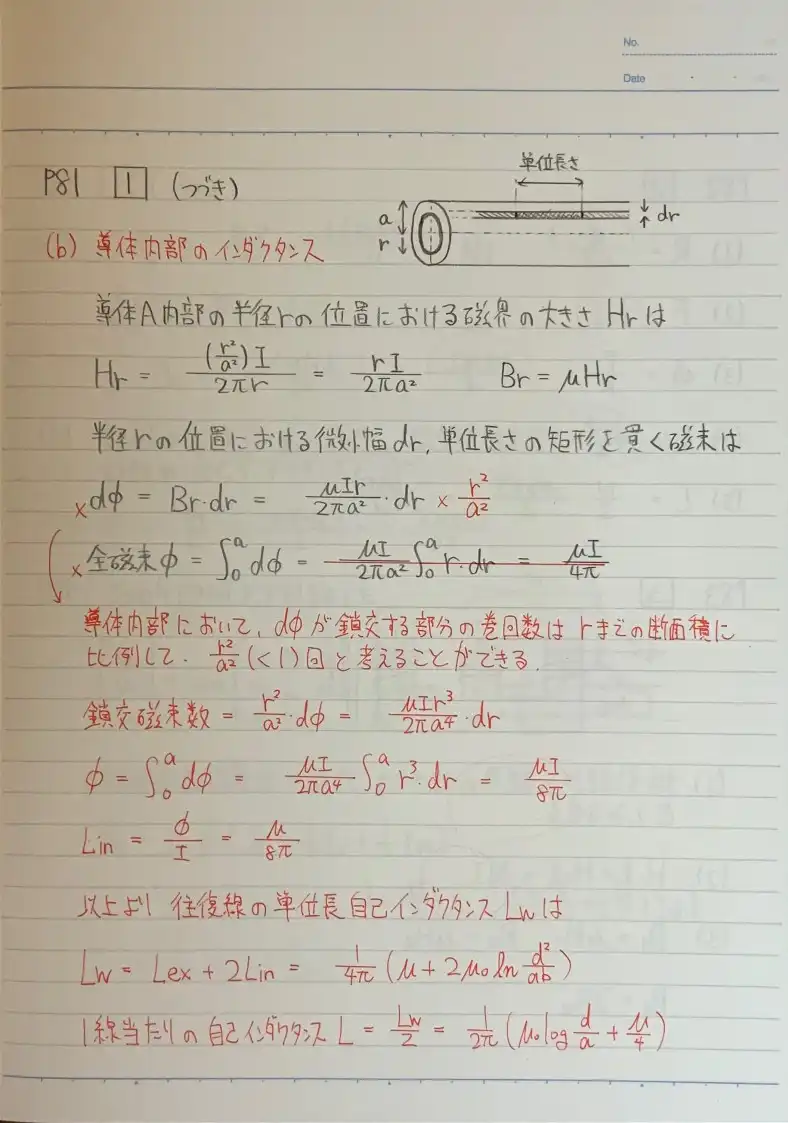 No.
Date
P81 1 (つづき)
単位長さ
a
r
dr
(b) 導体内部のインダクタンス
導体A内部の半径rの位置における磁界の大きさHrは
Hr = (r²/a²)I / 2πr = rI / 2πa²  Br = μHr
半径rの位置における微小幅dr, 単位長さの矩形を貫く磁束は
×dφ = Br・dr = μIr / 2πa² ・dr × r²/a²
×全磁束φ = ∫₀ᵃ dφ = μI / 2πa² ∫₀ᵃ r・dr = μI / 4π
導体内部において、dφが鎖交する部分の巻回数はrまでの断面積に
比例して、r²/a² (<1)回と考えることができる.
鎖交磁束数 = r²/a² ・dφ = μIr³ / 2πa⁴ ・dr
φ = ∫₀ᵃ dφ = μI / 2πa⁴ ∫₀ᵃ r³・dr = μI / 8π
Lin = φ / I = μ / 8π
以上より 往復線の単位長自己インダクタンスLwは
Lw = Lex + 2Lin = 1/4π (μ + 2μ₀ ln d²/ab)
1線当たりの自己インダクタンスL = Lw/2 = 1/2π (μ₀ log d/a + μ/4)